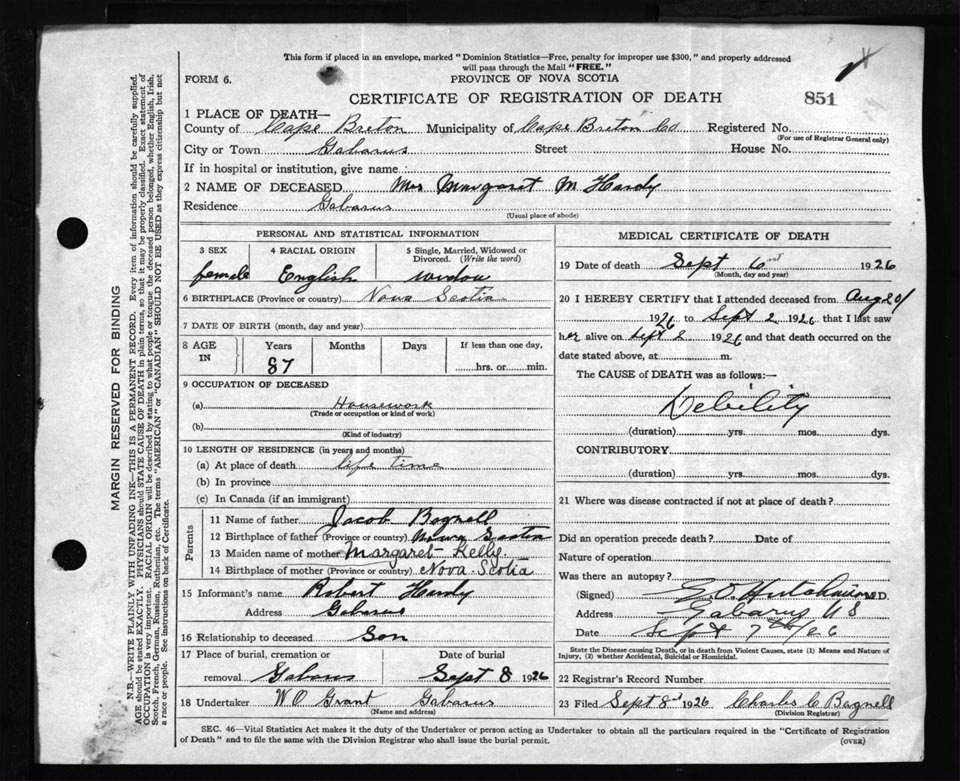 This form if placed in an envelope, marked "Dominion Statistics—Free, penalty for improper use $300," and properly addressed
will pass through the Mail "FREE."
FORM 6.
PROVINCE OF NOVA SCOTIA
CERTIFICATE OF REGISTRATION OF DEATH
851
1 PLACE OF DEATH—
County of Cape Breton Municipality of Cape Breton Co Registered No.
(For use of Registrar General only)
City or Town Gabarus Street House No.
If in hospital or institution, give name
2 NAME OF DECEASED Mrs Margaret M Hardy
Residence Gabarus
(Usual place of abode)
PERSONAL AND STATISTICAL INFORMATION
3 SEX
female
4 RACIAL ORIGIN
English
5 Single, Married, Widowed or
Divorced. (Write the word)
widow
6 BIRTHPLACE (Province or country) Nova Scotia
7 DATE OF BIRTH (month, day and year)
8 AGE
IN
Years Months Days If less than one day,
87 hrs. or min.
9 OCCUPATION OF DECEASED
(a) Housework
(Trade or occupation or kind of work)
(b)
(Kind of industry)
10 LENGTH OF RESIDENCE (in years and months)
(a) At place of death life time
(b) In province
(c) In Canada (if an immigrant)
Parents
11 Name of father Jacob Bagnell
12 Birthplace of father (Province or country) Nova Scotia
13 Maiden name of mother Margaret Kelly.
14 Birthplace of mother (Province or country) Nova Scotia
15 Informant's name Robert Hardy
Address Gabarus
16 Relationship to deceased Son
17 Place of burial, cremation or Date of burial
removal Gabarus Sept 8 1926
18 Undertaker W O Grant Gabarus
(Name and address)
MEDICAL CERTIFICATE OF DEATH
19 Date of death Sept 6 1926
(Month, day and year)
20 I HEREBY CERTIFY that I attended deceased from Aug 20
1926 to Sept 2 1926 that I last saw
her alive on Sept 2 1926 and that death occurred on the
date stated above, at m.
The CAUSE of DEATH was as follows:—
Debility
(duration) yrs. mos. dys.
CONTRIBUTORY
(duration) yrs. mos. dys.
21 Where was disease contracted if not at place of death?
Did an operation precede death? Date of
Nature of operation
Was there an autopsy?
(Signed) Hutchinson M.D.
Address Gabarus NS
Date Sept 7th/26
State the Disease causing Death, or in death from Violent Causes, state (1) Means and Nature of
Injury, (2) whether Accidental, Suicidal or Homicidal.
22 Registrar's Record Number
23 Filed Sept 8 1926 Charles C Bagnell
(Division Registrar)
SEC. 46—Vital Statistics Act makes it the duty of the Undertaker or person acting as Undertaker to obtain all the particulars required in the "Certificate of Registration
of Death" and to file the same with the Division Registrar who shall issue the burial permit.
(OVER)
MARGIN RESERVED FOR BINDING
N.B.—WRITE PLAINLY WITH UNFADING INK—THIS IS A PERMANENT RECORD. Every item of information should be carefully supplied.
AGE should be stated EXACTLY. PHYSICIANS should STATE CAUSE OF DEATH in plain terms, so that it may be properly classified. Exact statement of
OCCUPATION is very important. RACIAL ORIGIN will be described by stating to what people or tongue the deceased person belonged, whether English, Irish,
Scotch, French, German, Russian, Ruthenian, etc. The terms "AMERICAN" or "CANADIAN" SHOULD NOT BE USED as they express citizenship but not
a race or people. See instructions on back of Certificate.